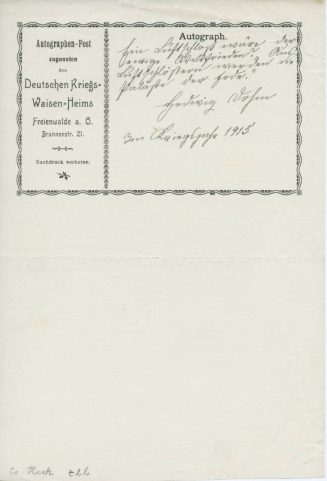 Autographen-Post
zugunsten
des
Deutschen Kriegs-
Waisen-Heims
Freienwalde a. O.
Brunnenstr. 21.
Nachdruck verboten.
Autograph.
Ein Luftschloß wäre der
ewige Weltfrieden? Aus
Luftschlössern werden die
Paläste der Erde.
Hedwig Dohm
Im Kriegsjahr 1915